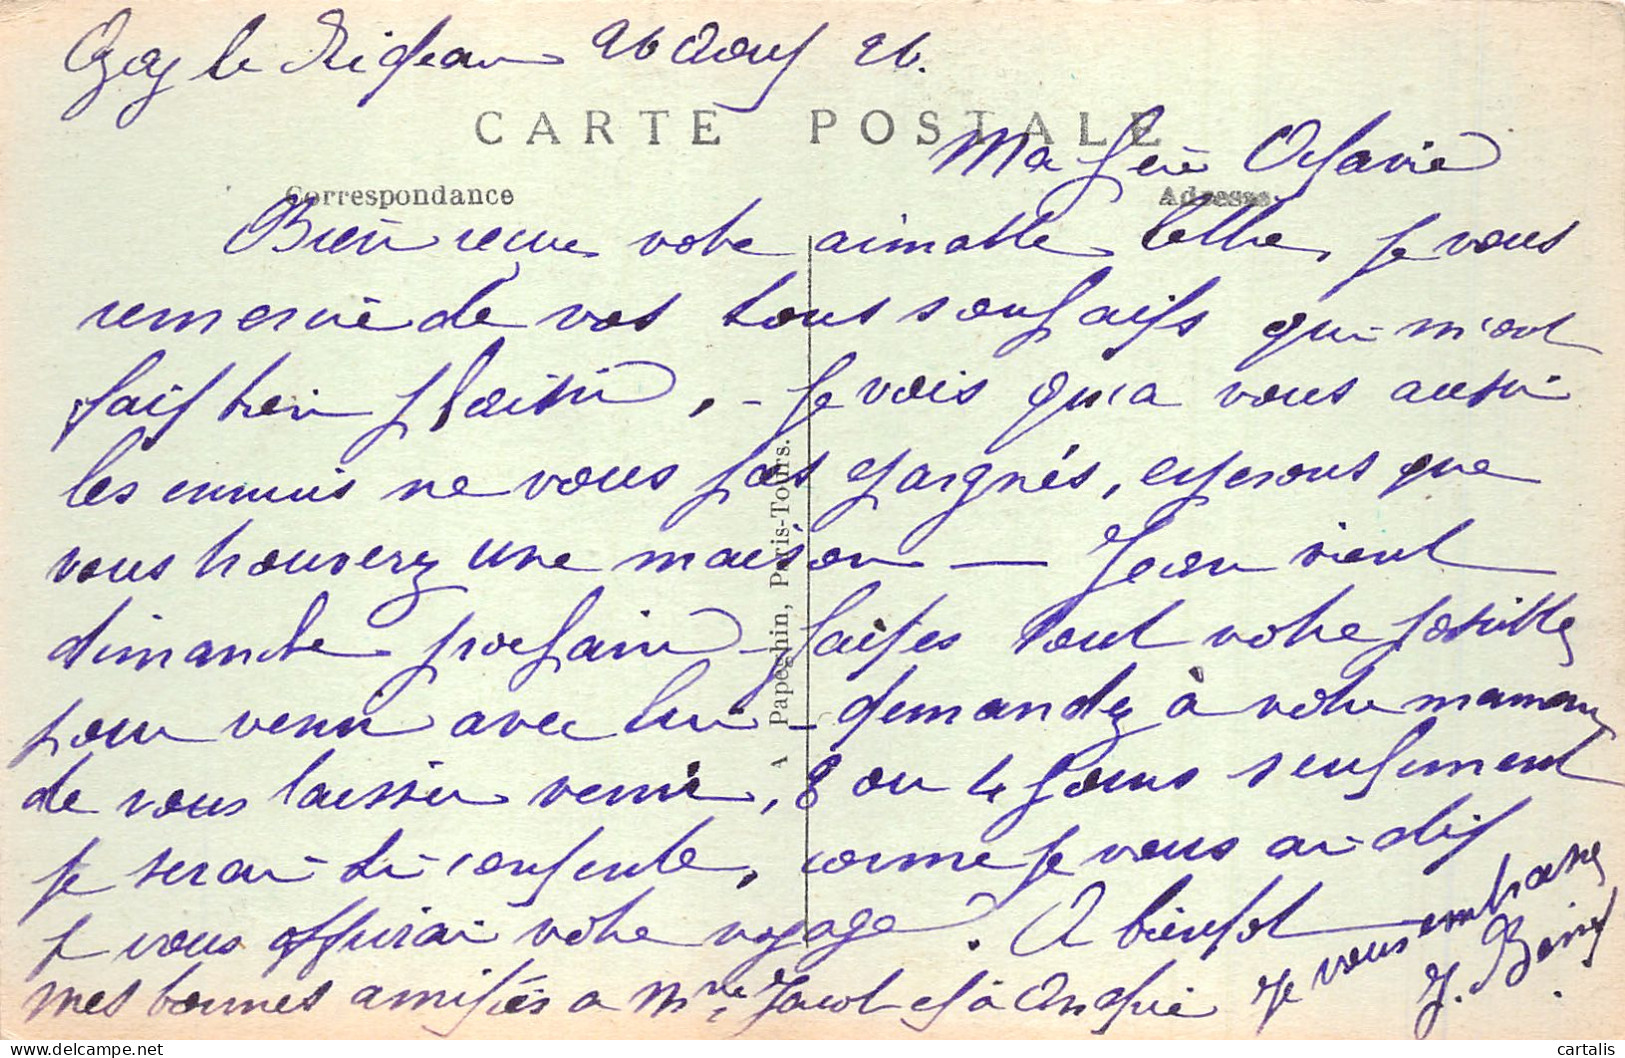 Azay le Rideau 26 Aout 26.
CARTE POSTALE
Ma Octavie
Correspondance
Adresse
Bien reçue votre aimable lettre, je vous
remercie de vos bons souhaits qui m'ont
fait bien plaisir, - Je vois qu'a vous aussi
les ennuis ne vous pas epargnés, esperons que
vous trouverez une maison — Jean vient
dimanche prochain - faites tout votre possible
pour venir avec lui - demandez à votre maman
de vous laisser venir, 8 ou 4 jours seulement
je serai si contente, comme je vous ai dit
je vous offrirai votre voyage. A bientot
mes bonnes amitiés a Mme Jacob et à
Je vous embrasse
J.
A Papeghin, Paris-Tours.
cartalis